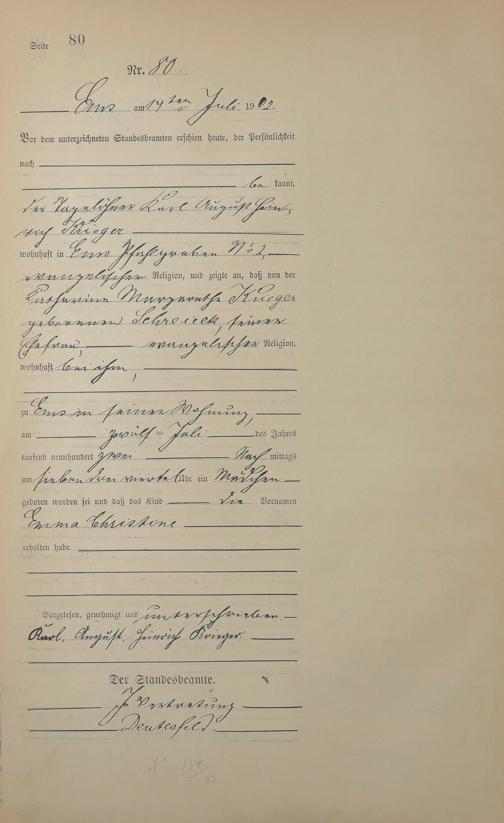 Seite 80
Nr. 80.
Ems am 14ten Juli 1902
Vor dem unterzeichneten Standesbeamten erschien heute, der Persönlichkeit
nach
be kannt,
der Tagelöhner Karl August Hein-
rich Krieger
wohnhaft in Ems Pfahlgraben No 2,
evangelischer Religion, und zeigte an, daß von der
Katharine Margarethe Krieger
geborenen Schreieck, seiner
Ehefrau, evangelischer Religion,
wohnhaft bei ihm,
zu Ems in seiner Wohnung,
am zwölften Juli des Jahres
tausend neunhundert zwei Nach mittags
um sieben drei viertel Uhr ein Mädchen
geboren worden sei und daß das Kind die Vornamen
Emma Christine
erhalten habe.
Vorgelesen, genehmigt und unterschrieben
Karl. August. Heinrich Krieger.
Der Standesbeamte.
In Vertretung
134